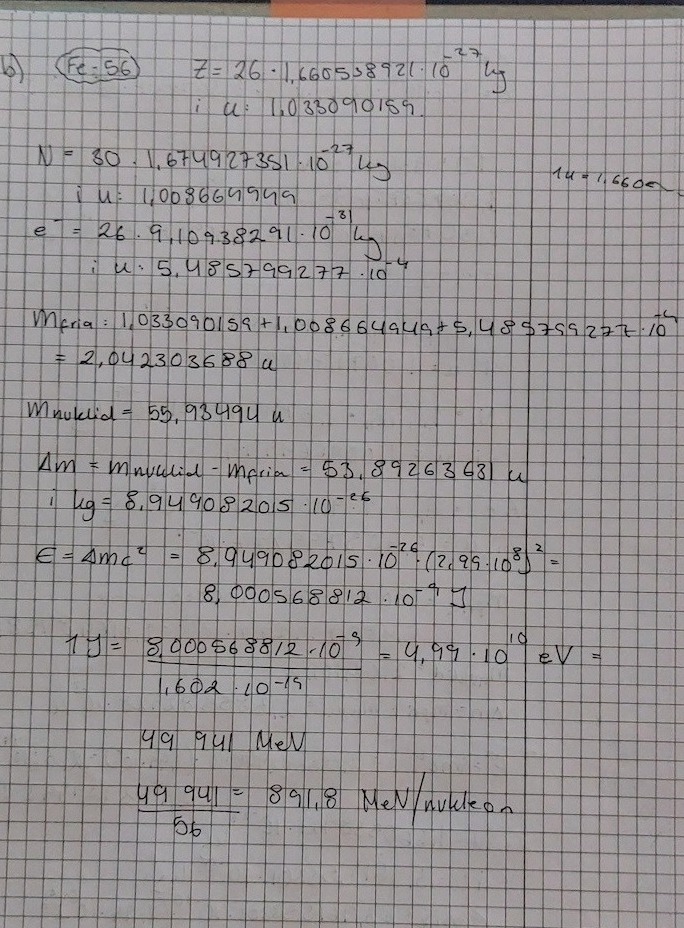 b) Fe-56 Z = 26 · 1,660538921 · 10⁻²⁷ kg
i u: 1,033090159.
N = 30 · 1,674927351 · 10⁻²⁷ kg
1u = 1,660
i u: 1,008664949
e⁻ = 26 · 9,10938291 · 10⁻³¹ kg
i u: 5,485799277 · 10⁻⁴
Mfria: 1,033090159 + 1,008664949 + 5,485799277 · 10⁻⁴
= 2,042303688 u
Mnuklid = 55,93494 u
Δm = Mnuklid - Mfria = 53,89263631 u
i kg = 8,949082015 · 10⁻²⁶
E = Δmc² = 8,949082015 · 10⁻²⁶ · (2,99 · 10⁸)² =
8,000568812 · 10⁻⁹ J
1 J = 8,000568812 · 10⁻⁹ / 1,602 · 10⁻¹⁹ = 4,99 · 10¹⁰ eV =
49 941 MeV
49 941 / 56 = 891,8 MeV/nukleon